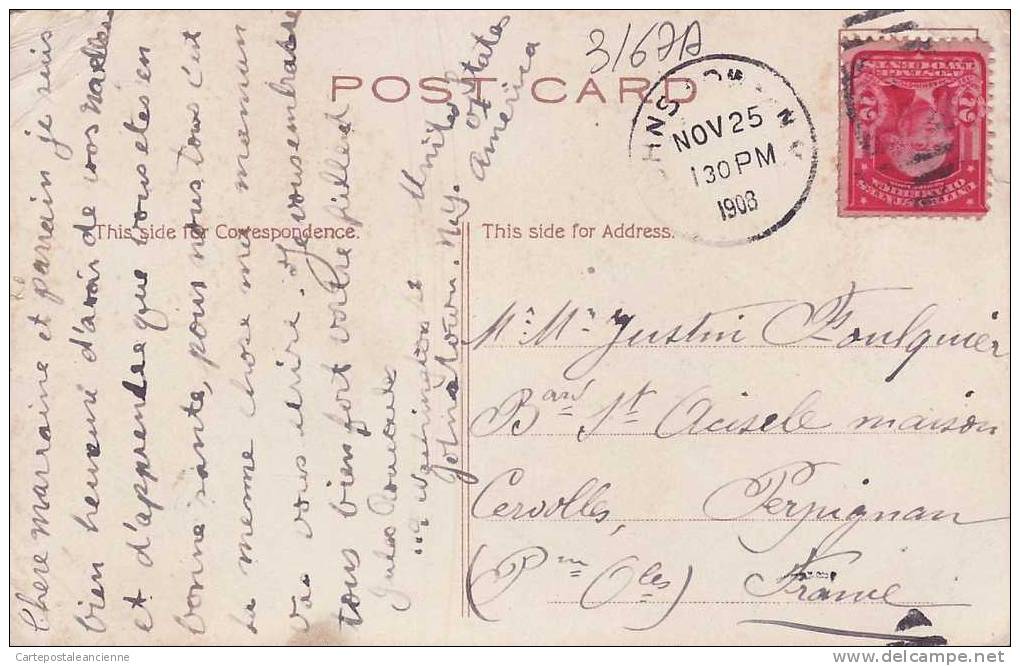 3/67A
POST CARD
JOHNSTOWN N.Y.
NOV 25
130 PM
1908
This side for Correspondence.
This side for Address.
Chere marraine et parrain je suis
bien heureu d'avoir de vos
et d'apprendre que vous etes en
bonne sante, pour nous tous c'est
la meme chose me
vous dire. Je vous embrasse
tous bien fort votre filleul
Jules
19 Washington St
Johnstown. N.Y.
United States
of America
Mr. Mr Justin Foulquier
Bard St Acisele maison
Cerolles, Perpignan
(Pnes Oles) France
UNITED STATES
OF AMERICA
2 2
TWO CENTS
Cartepostaleancienne
www.delcampe.net